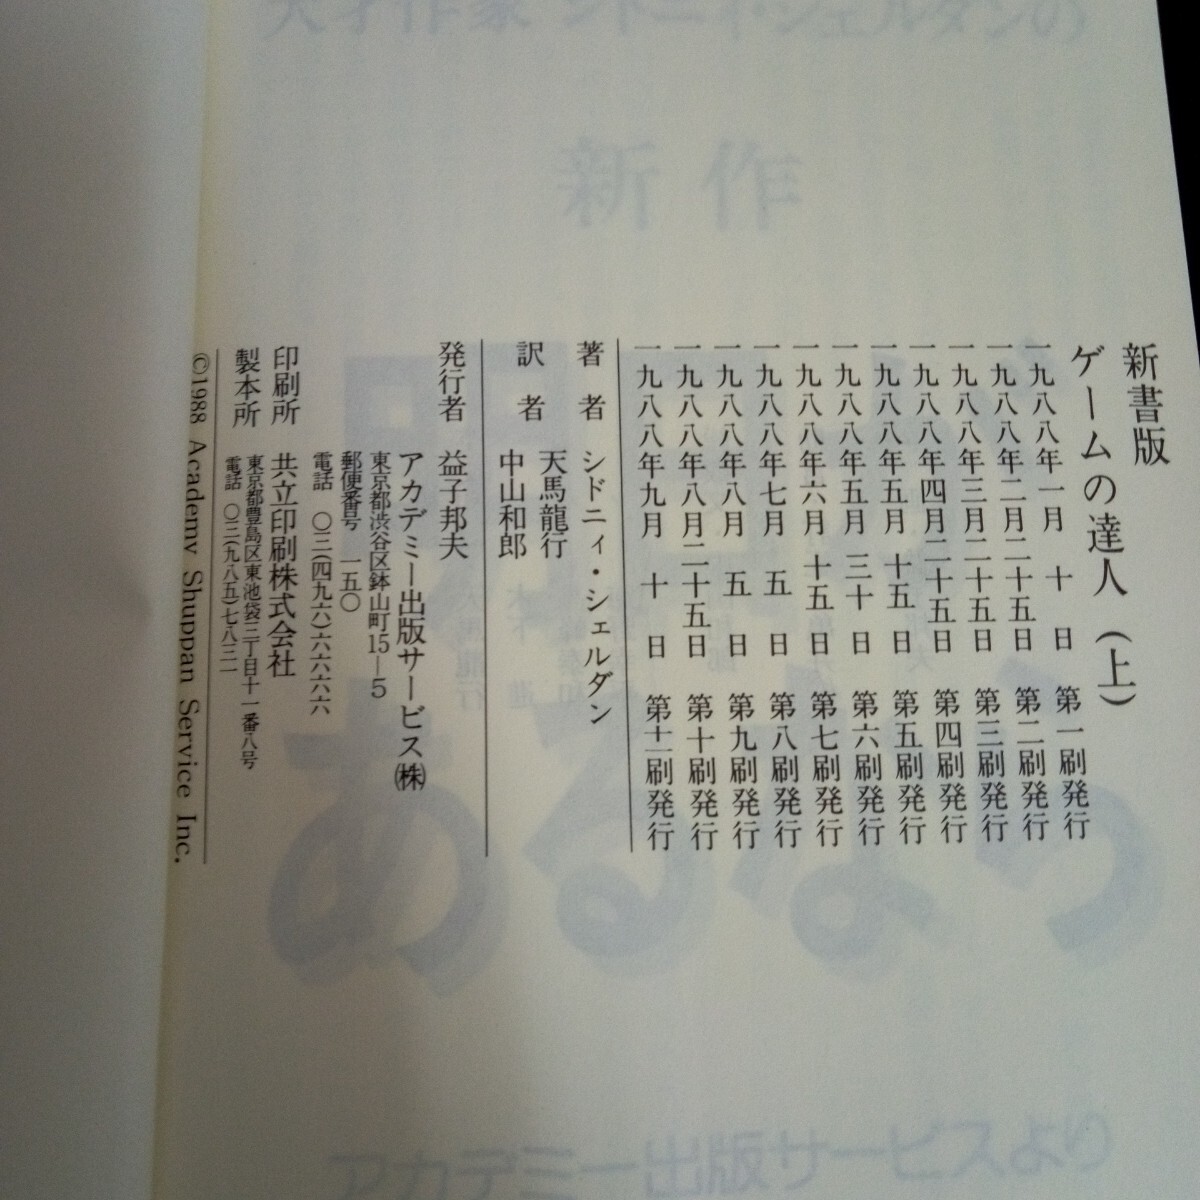 新書版
ゲームの達人（上）
一九八八年一月 十 日 第一刷発行
一九八八年二月二十五日 第二刷発行
一九八八年三月二十五日 第三刷発行
一九八八年四月二十五日 第四刷発行
一九八八年五月 十五 日 第五刷発行
一九八八年五月 三十 日 第六刷発行
一九八八年六月 十五 日 第七刷発行
一九八八年七月 五 日 第八刷発行
一九八八年八月 五 日 第九刷発行
一九八八年八月二十五日 第十刷発行
一九八八年九月 十 日 第十一刷発行
著 者 シドニィ・シェルダン
訳 者 天馬龍行
中山和郎
発行者 益子邦夫
アカデミー出版サービス㈱
東京都渋谷区鉢山町15―5
郵便番号 一五〇
電話 〇三(四九六)六六六六
印刷所 共立印刷株式会社
製本所 東京都豊島区東池袋三丁目十一番八号
電話 〇三(九八五)七八三一
©1988 Academy Shuppan Service Inc.
天才作家 シドニィ・シェルダンの
新作
アカデミー出版サービスより